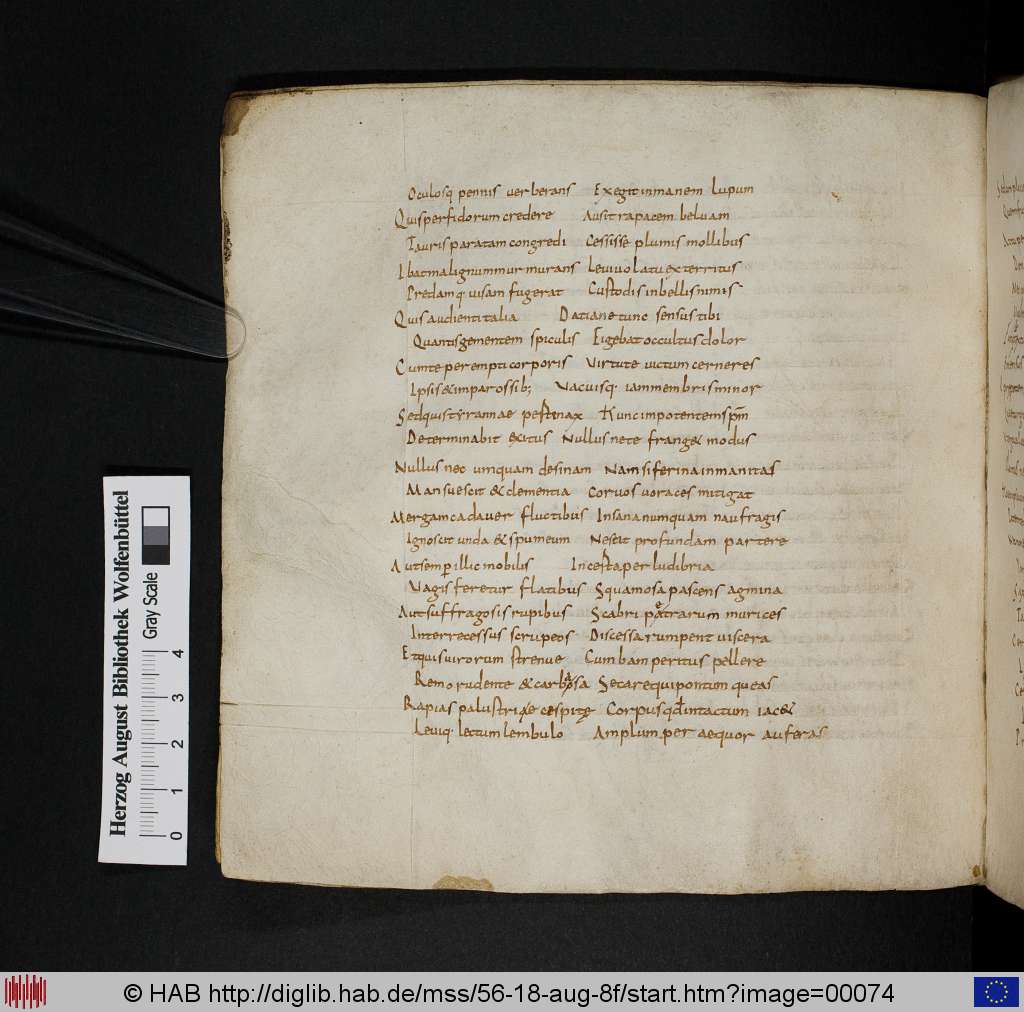 Oculosq pennis verberans Exegit inmanem lupum
Quis perfidorum credere Ausit rapacem beluam
Tauris paratam congredi Cessisse plumis mollibus
Ibat malignum murmurans Levi volatu exterritus
Predamq visam fugerat Custodis inbellis nimis
Quis audienti talia Datiane tunc sensus tibi
Quantis gementem spiculis Figebat occultus dolor
Cum te perempti corporis Virtute victum cerneres
Ipsis & impar ossib; Vacuisq iam membris minor
Sed quis tyrannae pestinax Hunc inpotentem spm̄
Determinabit exitus Nullus ne te frang& modus
Nullus nec umquam desinam Nam si ferina inmanitas
Mansuescit & clementia Corvos voraces mitigat
Mergam cadaver fluctibus Insana numquam naufragis
Ignoscit unda & spumeum Nescit profundam partere
Aut semp illic mobilis Incesta per ludibria
Vagis feretur flatibus Squamosa pascens agmina
Aut sub fragosis rupibus Scabri petrarum murices
Inter recessus scrupeos Discessa rumpent viscera
Etquis virorum strenue Cumbam peritus pellere
Remo rudente & carbasa Secare qui pontum queas
Rapias palustri e cespite Corpus qđ intactum iac&
Leviq vectum lembulo Amplum per aequor auferas
Herzog August Bibliothek Wolfenbüttel
Gray Scale
0 1 2 3 4
© HAB http://diglib.hab.de/mss/56-18-aug-8f/start.htm?image=00074